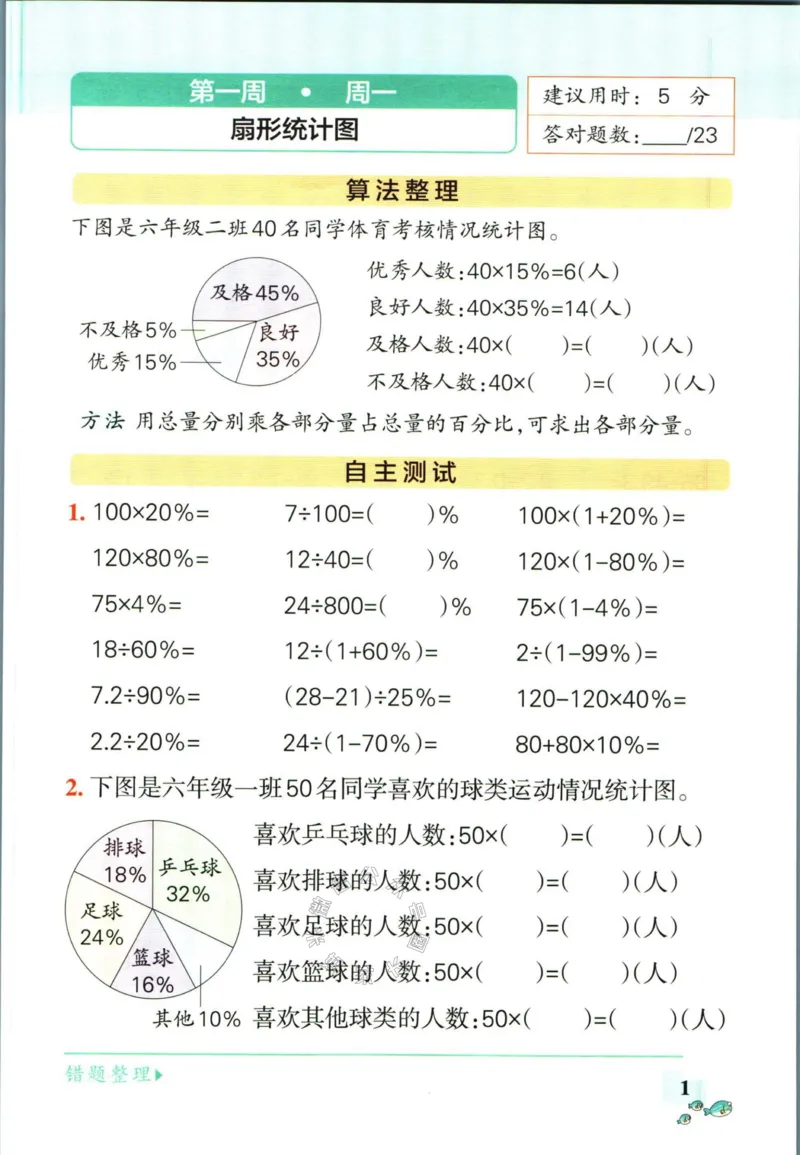 第一周 · 周一
扇形统计图
建议用时: 5 分
答对题数:____/23
算法整理
下图是六年级二班40名同学体育考核情况统计图。
及格45%
不及格5%
优秀15%
良好
35%
优秀人数:40×15%=6(人)
良好人数:40×35%=14(人)
及格人数:40×( )=( )(人)
不及格人数:40×( )=( )(人)
方法 用总量分别乘各部分量占总量的百分比,可求出各部分量。
自主测试
1. 100×20%= 7÷100=( )% 100×(1+20%)=
120×80%= 12÷40=( )% 120×(1-80%)=
75×4%= 24÷800=( )% 75×(1-4%)=
18÷60%= 12÷(1+60%)= 2÷(1-99%)=
7.2÷90%= (28-21)÷25%= 120-120×40%=
2.2÷20%= 24÷(1-70%)= 80+80×10%=
2. 下图是六年级一班50名同学喜欢的球类运动情况统计图。
排球
18%
乒乓球
32%
足球
24%
篮球
16%
其他10%
喜欢乒乓球的人数:50×( )=( )(人)
喜欢排球的人数:50×( )=( )(人)
喜欢足球的人数:50×( )=( )(人)
喜欢篮球的人数:50×( )=( )(人)
喜欢其他球类的人数:50×( )=( )(人)
错题整理
1